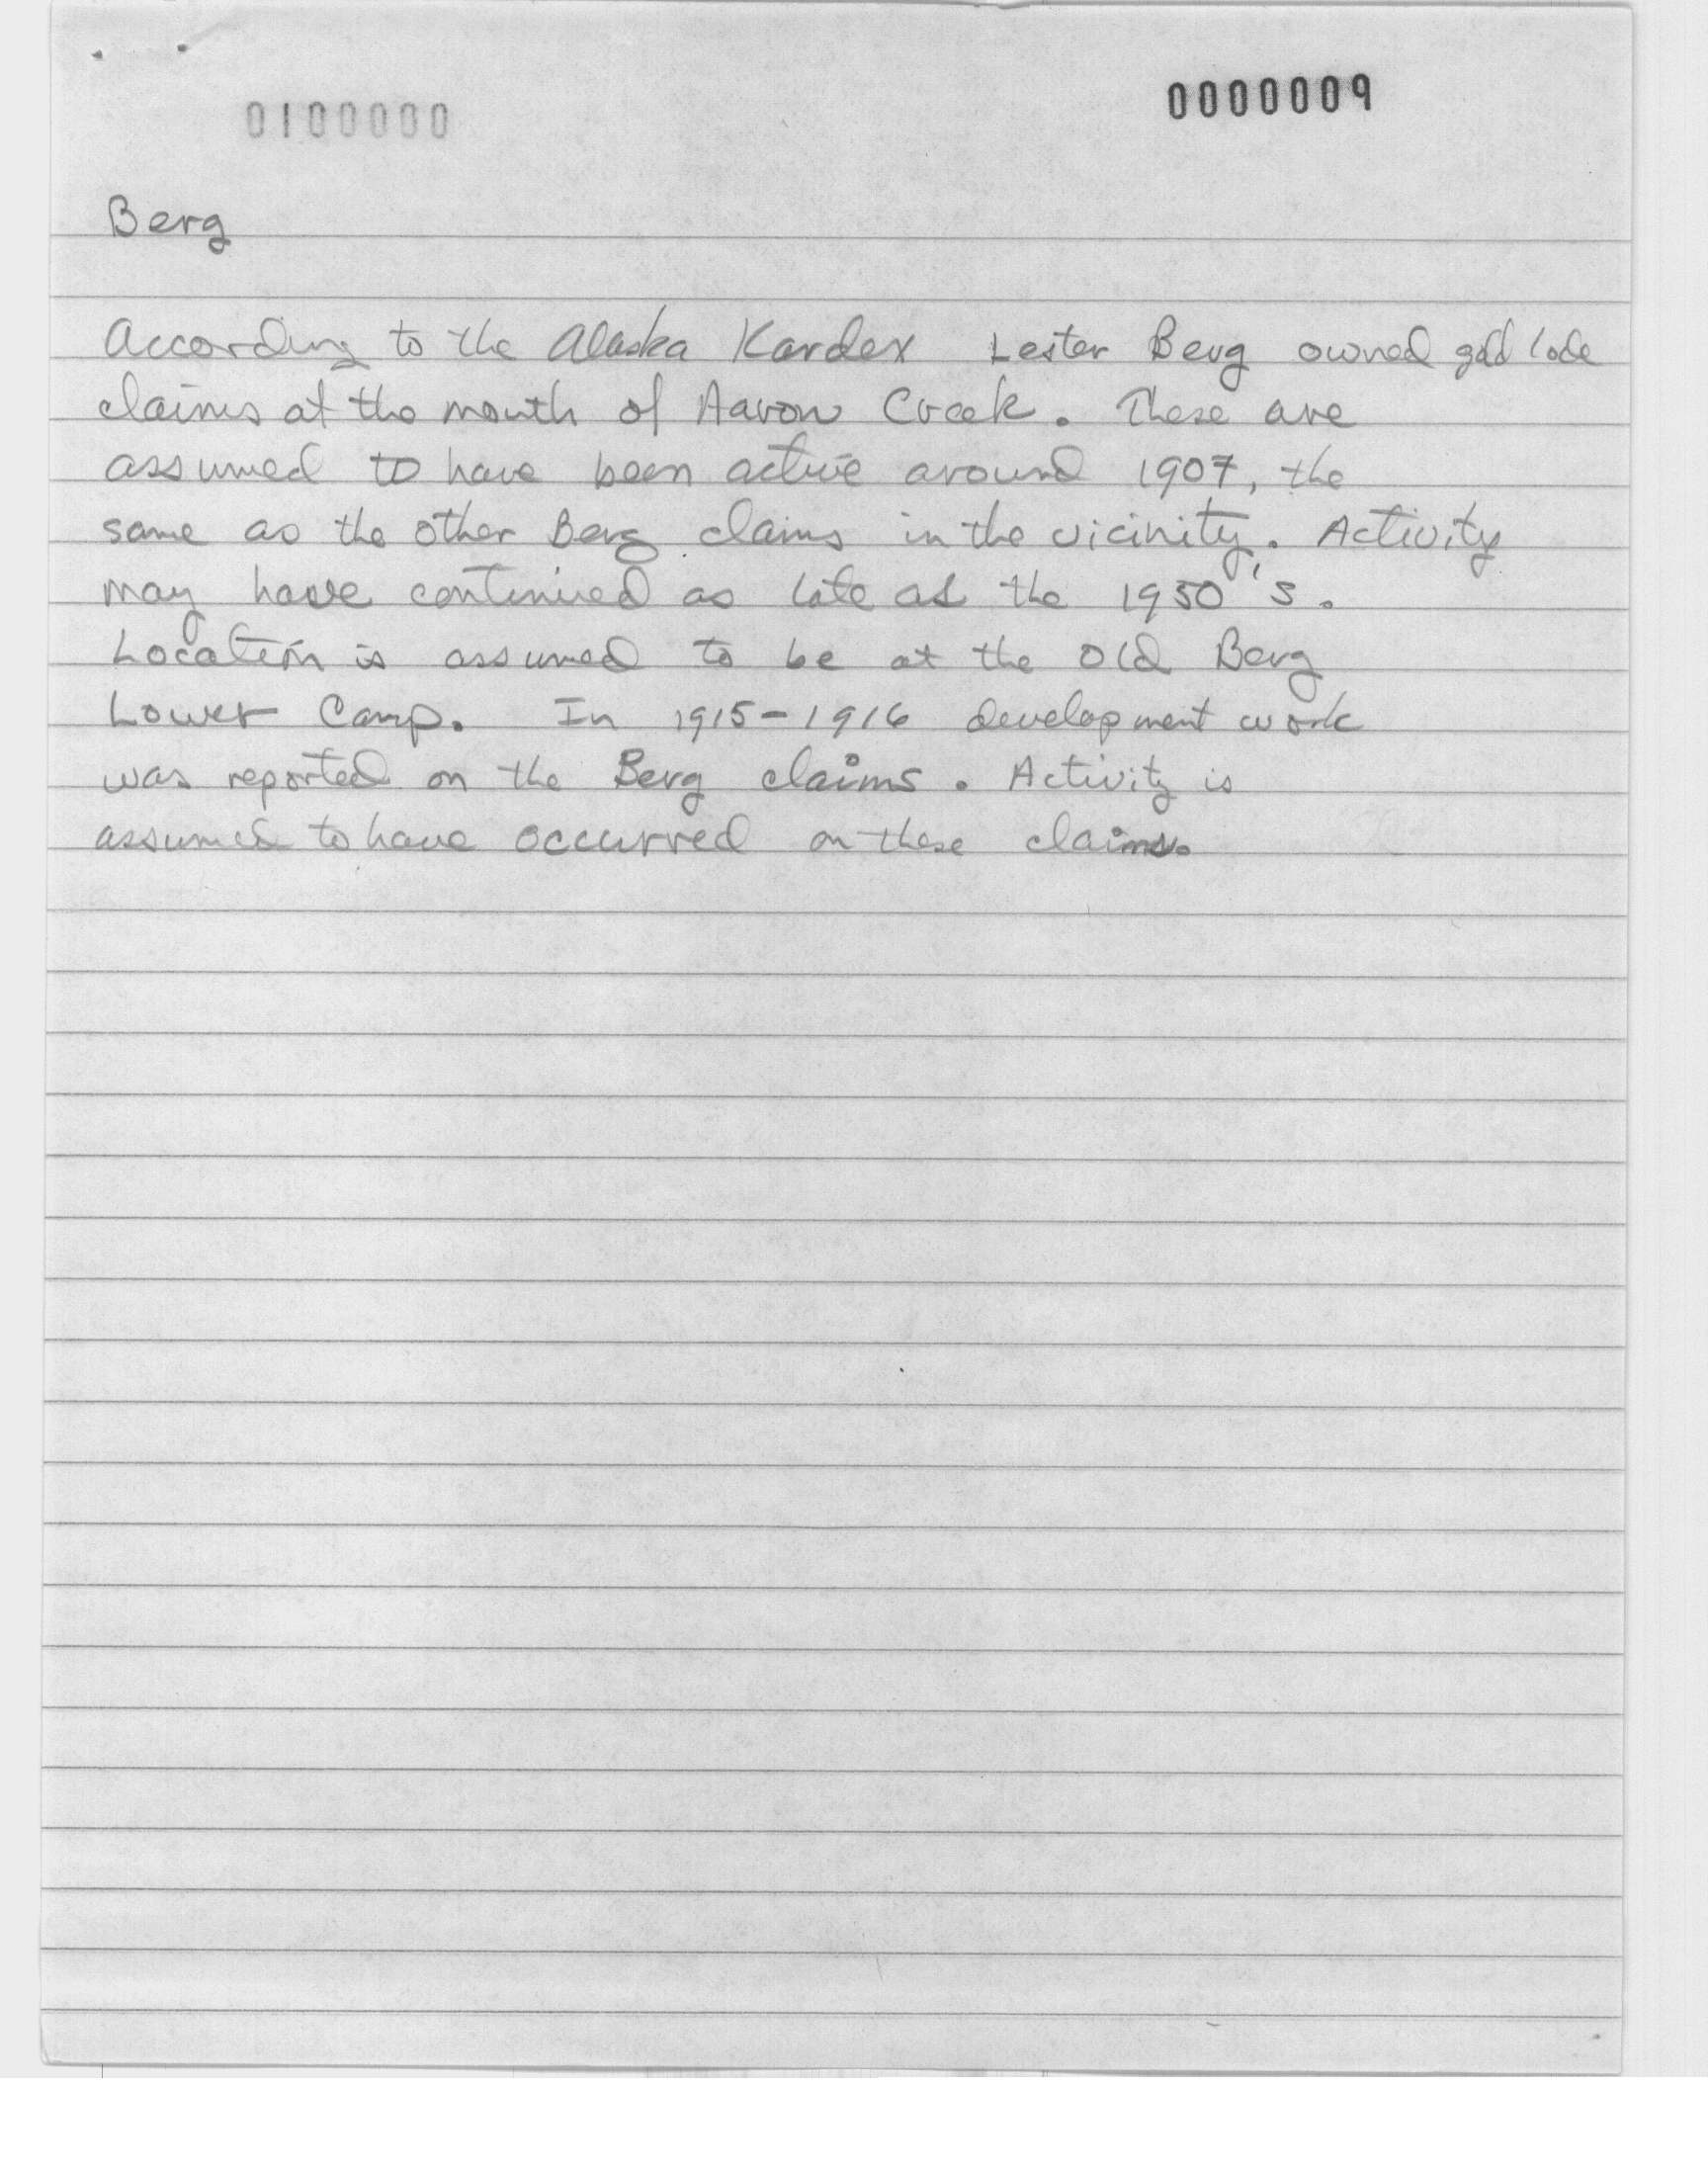 0100000
0000009
Berg
According to the Alaska Kardex Lester Berg owned gold lode
claims at the mouth of Aaron Creek. These are
assumed to have been active around 1907, the
same as the other Berg claims in the vicinity. Activity
may have continued as late as the 1950's.
Location is assumed to be at the Old Berg
Lower Camp. In 1915-1916 development work
was reported on the Berg claims. Activity is
assumed to have occurred on these claims.